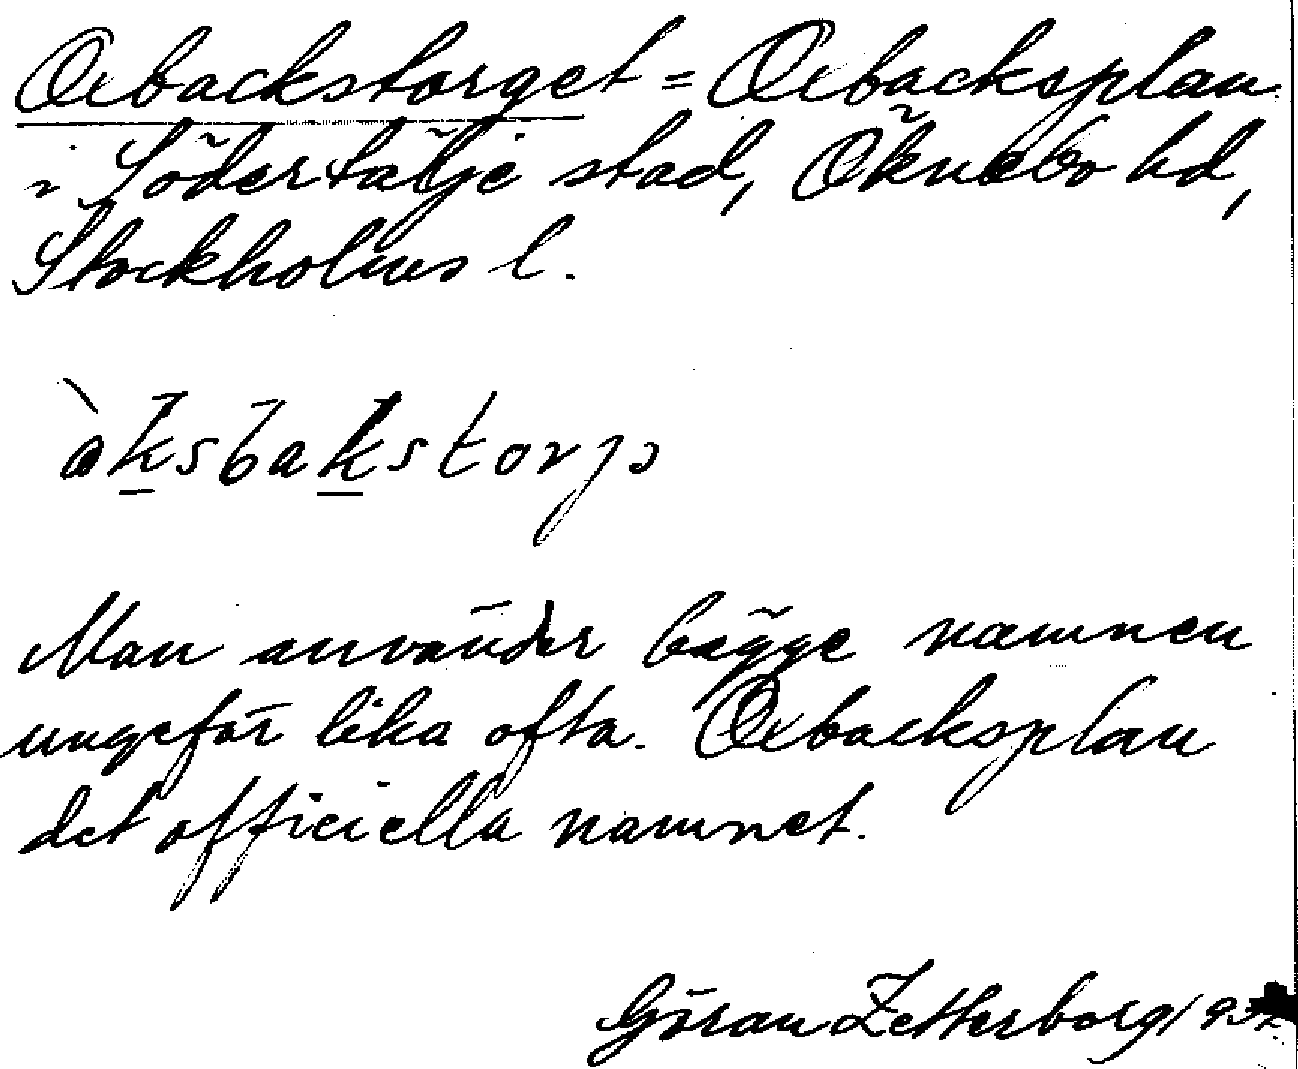 Oxbackstorget = Oxbacksplan
i Södertälje stad, Öknebo hd,
Stockholms l.
Man använder bägge namnen
ungefär lika ofta. Oxbacksplan
det officiella namnet.
Göran Zetterborg